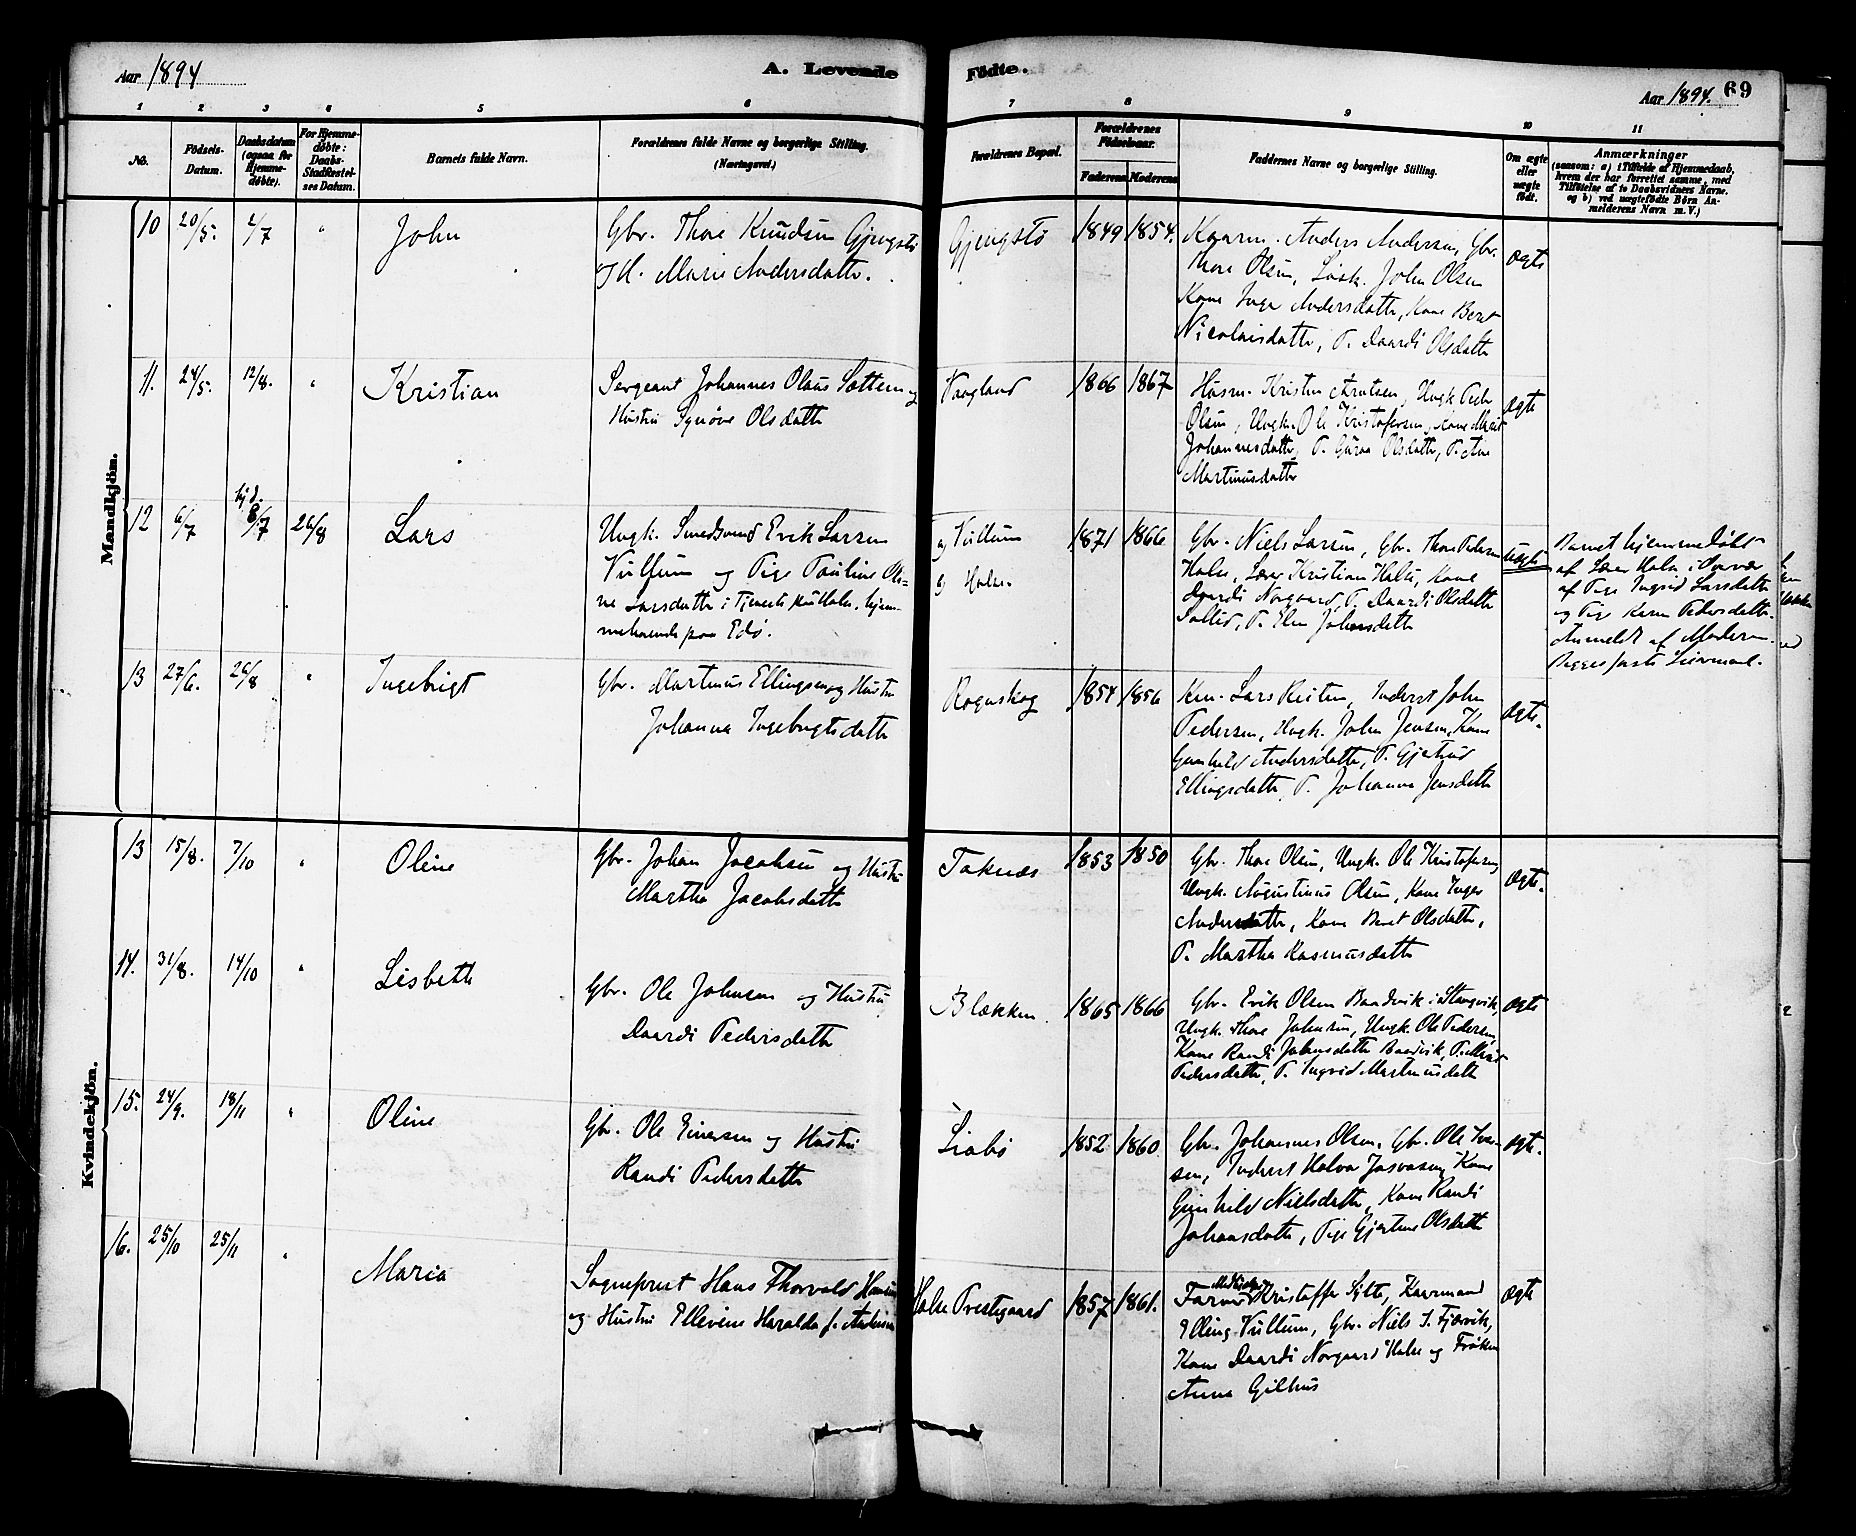 Aar 1894
A. Levende
Fødte.
Aar 1894.
69
1 2 3 4 5 6 7 8 9 10 11
No.
Fødsels-
Datum.
Daabsdatum
(ogsaa for
Hjemme-
døbte).
For Hjemme-
døbte:
Daabs-
Stadfæstel-
ses Datum.
Barnets fulde Navn.
Forældrenes fulde Navne og borgerlige Stilling.
(Næringsvei.)
Forældrenes Bopæl.
Forældrenes
Fødselsaar.
Faderens Moderens
Faddernes Navne og borgerlige Stilling.
Om ægte
eller
uægte
født.
Anmærkninger
(saasom: a) i Tilfælde af Hjemmedaab,
hvem der har forrettet samme, med
Tilføielse af to Daabsvidners Navne.
og b) ved uægtefødte Børn An-
melderens Navn m.V.)
Mandkjön.
10 20/5. 2/7 " John
Gbr. Thore Knudsen Gjengstø
og H. Marie Andersdatter.
Gjengstø 1849 1854.
Kaarm. Anders Andersen, Gbr.
Thore Olsen, John Olsen
Kone Inger Andersdatter, Kone Beret
Nicolaisdatter, P. Daardi Olsdatter
ægte
11. 24/5. 12/8. " Kristian
Sergeant Johannes Olaus Sættem og
Hustru Synøve Olsdatter
Vaagland 1866 1867
Husm. Kristen Arntsen, Ungk. Peder
Olsen, Ungk. Ole Kristofersen, Kone Marit
Johannesdatter, P. Guroa Olsdatter, P. Ane
Martinusdatter
ægte
12 6/7 hj.d. 8/7 26/8 Lars
Ungk. Smedsvend Erik Larsen
Vullum og Pige Pauline Oli-
ne Larsdatter i Tjeneste paa Halse, hjem-
mehørende paa Edø.
Vullum
og Halse
1871 1866
Gbr. Niels Larsen, Gbr. Thore Pedersen
Halse, Lærer Kristian Halse, Kone
Daardi Norgaard, P. Daardi Olsdatter
P. Elen Johnsdatter
uægte
Barnet hjemmedøbt
af Lærer Halse i Overvær
af Pige Ingrid Larsdatter
og Pige Karen Pedersdatter.
Anmeldt af Moderen.
Begges første Leiermaal.
13 27/6. 26/8 " Ingebrigt
Gbr. Martinus Ellingsen og Hustru
Johanna Ingebrigtsdatter
Rognskog 1854 1856
Lars Reiten, Inderst John
Pedersen, Ungk. John Jensen, Kone
Gunhild Andersdatter, P. Gjertrud
Ellingsdatter, P. Johanna Jensdatter
ægte.
Kvindekjön.
13 15/8. 7/10 " Oline
Gbr. Johan Jacobsen og Hustru
Martha Jacobsdatter
Taknæs 1853 1850
Gbr. Thore Olsen, Ungk. Ole Kristofersen,
Ungk. Augustinus Olsen, Kone Inger
Andersdatter, Kone Beret Olsdatter,
P. Martha Rasmusdatter
ægte.
14. 31/8. 14/10 " Lisbeth
Gbr. Ole Johnsen og Hustru
Daardi Pedersdatter
Blækken 1865 1866
Gbr. Erik Olsen Baadvik i Stangvik,
Ungk. Thore Johnsen, Ungk. Ole Pedersen,
Kone Randi Johnsdatter Baadvik, P. Marit
Pedersdatter, P. Ingrid Martinusdatter
ægte
15. 24/9. 18/11 " Oline
Gbr. Ole Einersen og Hustru
Randi Pedersdatter
Liabø 1852 1860
Gbr. Johannes Olsen, Gbr. Ole Iver-
sen, Inderst Halvor Kone
Gunhild Nielsdatter, Kone Randi
Johansdatter, Pige Gjertine Olsdatter
ægte.
16. 25/10 25/11 " Maria
Sogneprest Hans Thorvald Hansen
og Hustru Ellevine Haralda f. Andersen
Halse Prestegaard 1857 1861.
Kristoffer Kaarmand
Elling Vullum, Gbr. Niels J. Fjærvik,
Kone Daardi Norgaard Halse og Frøken
Anna Gilhus
ægte